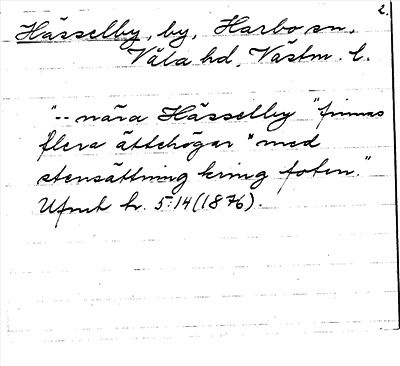 2.
Hässelby, by, Harbo sn,
Våla hd, Västm. l.
"-- nära Hässelby "finnas
flera ättehögar "med
stensättning kring foten."
Ufmt h. 5:14 (1876).